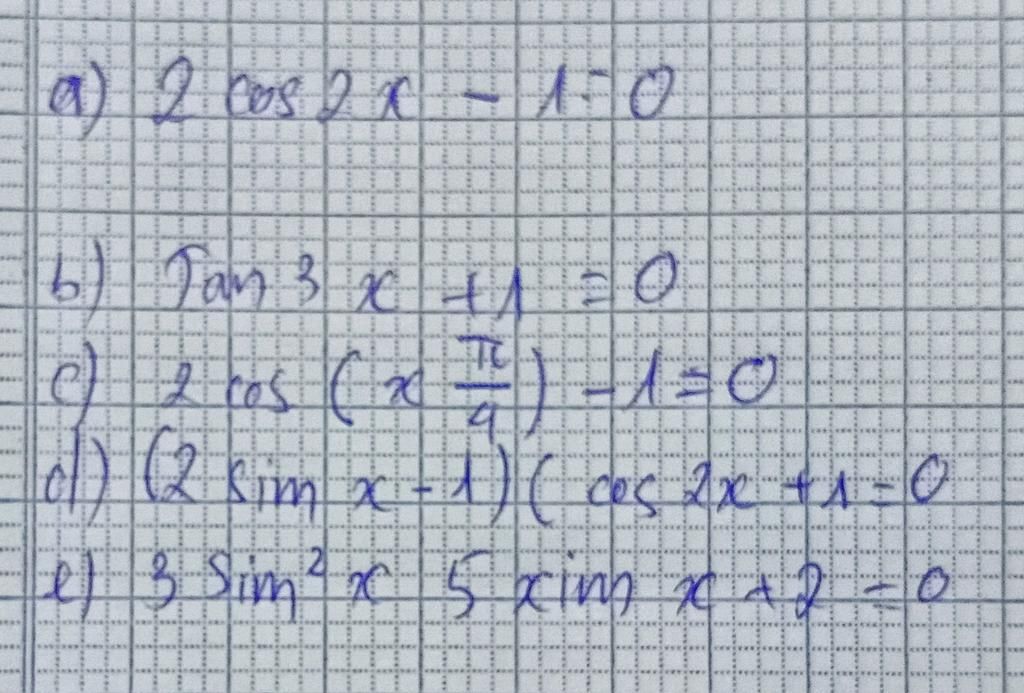 a) 2 cos 2x - 1 = 0
b) Tan 3 x + 1 = 0
c) 2 cos ( x π/4 ) - 1 = 0
d) (2 sim x - 1) ( cos 2x + 1 = 0
e) 3 Sim² x 5 xim x + 2 = 0